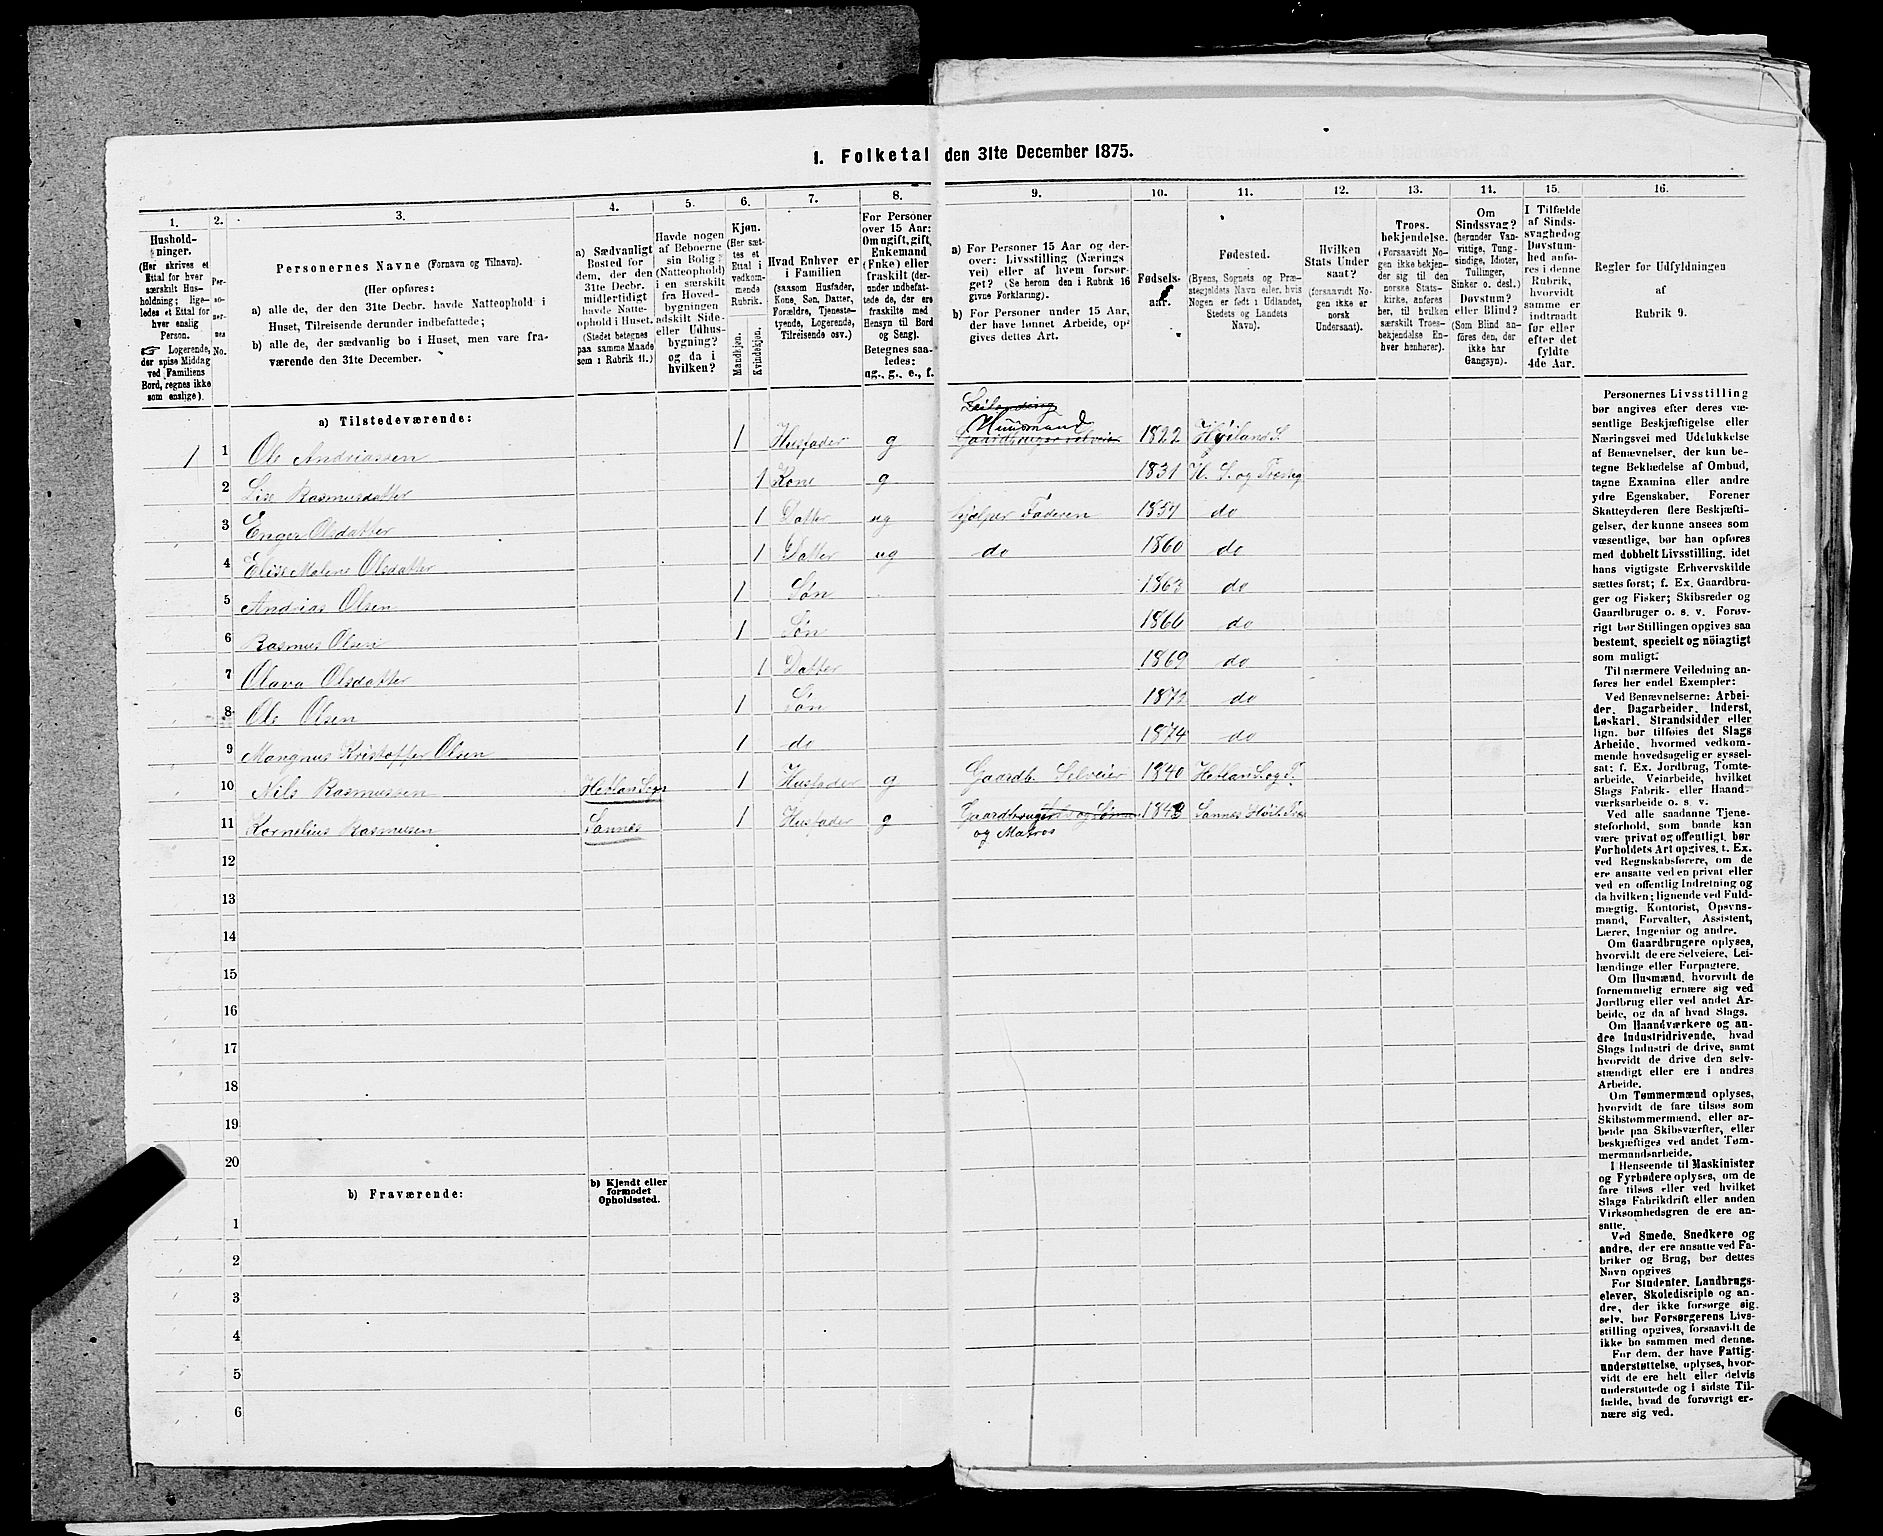 1. Folketal den 31te December 1875.
1. 2. 3. 4. 5. 6. 7. 8. 9. 10. 11. 12. 13. 14. 15. 16.
Hushold-
ninger.
(Her skrives et
Ettal for hver
særskilt Hus-
holdning; lige-
ledes et Ettal for
hver enslig
Person.
☞ Logerende,
der spise Middag
ved Familiens
Bord, regnes ikke
som enslige).
Per-
so-
ner-
nes
No.
Personernes Navne (Fornavn og Tilnavn).
(Her opføres:
a) alle de, der den 31te Decbr. havde Natteophold i
Huset, Tilreisende derunder indbefattede;
b) alle de, der sædvanlig bo i Huset, men vare fra-
værende den 31te December.
a) Sædvanligt
Bosted for
dem, der den
31te Decbr.
midlertidigt
havde Natte-
ophold i Huset.
(Stedet betegnes
paa samme Maade
som i Rubrik 11.)
Havde nogen
af Beboerne
sin Bolig
(Natteophold)
i en særskilt
fra Hoved-
bygningen
adskilt Side-
eller Udhus-
bygning?
og da i
hvilken?
Kjøn.
(Her sæt-
tes et
Ettal i
vedkom-
mende
Rubrik.
Mandkjøn.
Kvindekjøn.
Hvad Enhver er
i Familien
(saasom Husfader,
Kone, Søn, Datter,
Forældre, Tjeneste-
tyende, Logerende,
Tilreisende osv.)
For Personer
over 15 Aar:
Om ugift, gift,
Enkemand
(Enke) eller
fraskilt (der-
under indbefat-
tede de, der ere
fraskilte med
Hensyn til Bord
og Seng).
Betegnes saa-
ledes:
ug., g., e., f.
a) For Personer 15 Aar og der-
over: Livsstilling (Nærings
vei) eller af hvem forsør-
get? (Se herom den i Rubrik 16
givne Forklaring).
b) For Personer under 15 Aar,
der have lønnet Arbeide, op-
gives dettes Art.
Fødsels-
aar.
Fødested.
(Byens, Sognets og Præ-
stegjeldets Navn eller, hvis
Nogen er født i Udlandet,
Stedets og Landets
Navn).
Hvilken
Stats Under
saat?
(forsaavidt No-
gen ikke er
norsk
Undersaat).
Troes-
bekjendelse.
(Forsaavidt No-
gen ikke bekjen-
der sig til den
norske Stats-
kirke, anføres
her, til hvilken
særskilt Troes-
bekjendelse En-
hver henhører).
Om
Sindssvag?
(herunder Van-
vittige, Tung-
sindige, Idioter,
Tullinger,
Sinker o. desl.)
Døvstum?
eller Blind?
(Som Blind an-
føres den, der
ikke har
Gangsyn).
I Tilfælde
af Sinds-
svaghed og
Døvstum-
hed anfø-
res i denne
Rubrik,
hvorvidt
samme er
indtraadt
før eller
efter det
fyldte
4de Aar.
Regler for Udfyldningen
af
Rubrik 9.
a) Tilstedeværende:
Leilænding
Husmand
1 1 Ole Andriassen 1 Husfader g Gaardbruger Selveier 1822 Høiland S.
2 Lise Rasmusdatter 1 Kone g 1831 H. S. og Præsteg
3 Enger Olsdatter 1 Datter ug hjelper Faderen 1857 do
4 Elise Malene Olsdatter 1 Datter ug do 1860 do
5 Andrias Olsen 1 Søn 1863 do
6 Rasmus Olsen 1 Søn 1866 do
7 Olava Olsdatter 1 Datter 1869 do
8 Ole Olsen 1 Søn 1872 do
9 Mangnus Kristoffer Olsen 1 do 1874 do
10 Nils Rasmussen Hetlan Sogn 1 Husfader g Gaardb. Selveier 1840 Hetlan S. og P.
11 Kornelius Rasmusen Sannes 1 Husfader g Gaardbruger og Sømand 1843 Sannes Høil. Præ
og Matros
12
13
14
15
16
17
18
19
20
b) Fraværende:
b) Kjendt eller
formodet
Opholdssted.
1
2
3
4
5
6
Personernes Livsstilling
bør angives efter deres væ-
sentlige Beskjæftigelse eller
Næringsvei med Udelukkelse
af Benævnelser, der kun be-
tegne Beklædelse af Ombud,
tagne Examina eller andre
ydre Egenskaber. Forener
Skatteyderen flere Beskjæfti-
gelser, der kunne ansees som
væsentlige, bør han opføres
med dobbelt Livsstilling, idet
hans vigtigste Erhvervskilde
sættes først; f. Ex. Gaardbru-
ger og Fisker; Skibsreder og
Gaardbruger o. s. v. Forøv-
rigt bør Stillingen opgives saa
bestemt, specielt og nöiagtigt
som muligt.
Til nærmere Veiledning an-
føres her endel Exempler:
Ved Benævnelserne: Arbei-
der, Dagarbeider, Inderst,
Løskarl, Strandsidder eller
lign. bør tilføies det Slags
Arbeide, hvormed vedkom-
mende hovedsagelig er syssel-
sat; f. Ex. Jordbrug, Tomte-
arbeide, Veiarbeide, hvilket
Slags Fabrik- eller Haand-
værksarbeide o. s. v.
Ved alle saadanne Tjene-
steforhold, som baade kan
være privat og offentligt, bør
Forholdets Art opgives, t. Ex.
ved Regnskabsførere, om de
ere ansatte ved en privat eller
ved en offentlig Indretning og
da hvilken; lignende ved Fuld-
mægtig, Kontorist, Opsyns-
mand, Forvalter, Assistent,
Lærer, Ingeniør og andre.
Om Gaardbrugere oplyses,
hvorvidt de ere Selveiere, Lei-
lændinge eller Forpagtere.
Om Husmænd, hvorvidt de
fornemmelig ernære sig ved
Jordbrug eller ved andet Ar-
beide, og da af hvad Slags.
Om Haandværkere og an-
dre Industridrivende, hvad
Slags Industri de drive, samt
hvorvidt de drive den selv-
stændigt eller ere i andres
Arbeide.
Om Tømmermænd oplyses,
hvorvidt de fare tilsøs som
Skibstømmermænd, eller ar-
beide paa Skibsværfter, eller
beskjæftiges ved andet Tøm-
mermandsarbeide.
I Henseende til Maskinister
og Fyrbødere oplyses, om de
fare tilsøs eller ved hvilket
Slags Fabrikdrift eller anden
Virksomhedsgren de ere an-
satte.
Ved Smede, Snedkere og
andre, der ere ansatte ved Fa-
briker og Brug, bør dettes
Navn opgives
For Studenter, Landbrugs-
elever, Skoledisciple og an-
dre, der ikke forsørge sig
selv, bør Forsørgerens Livs-
stilling opgives, forsaavidt de
ikke bo sammen med denne.
For dem, der have Fattig-
understøttelse, oplyses, hvor-
vidt de ere helt eller delvis
understøttede og i sidste Til-
fælde, hvad de forøvrigt er-
nære sig ved.